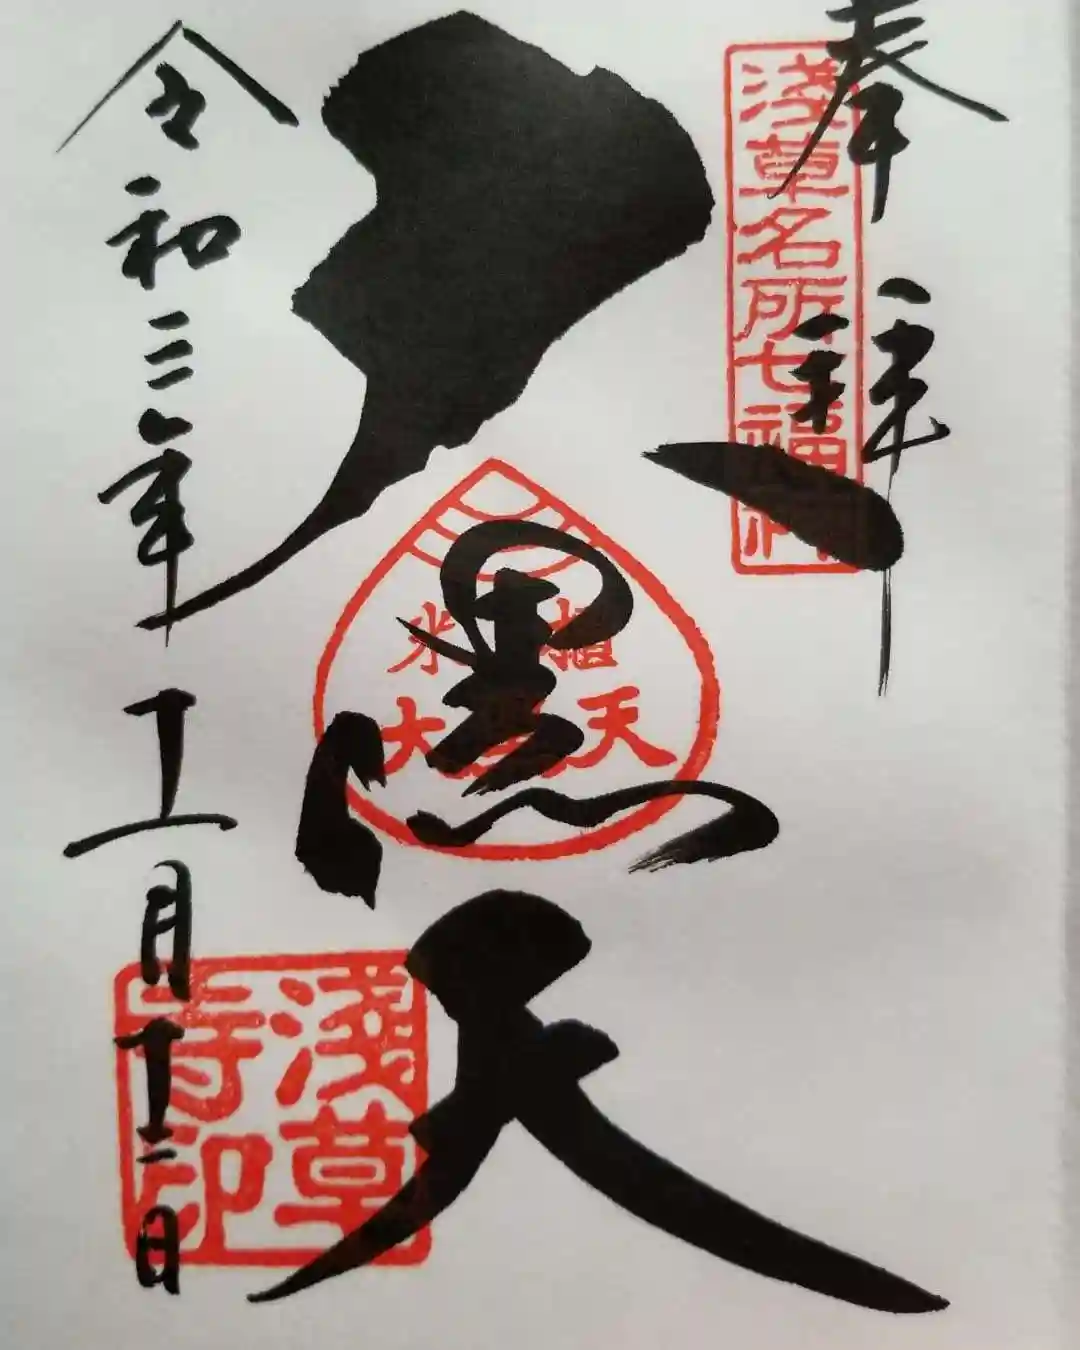 奉拝
淺草名所七福神
大黒天
米櫃
大黒天
令和三年十一月十二日
淺草
寺印